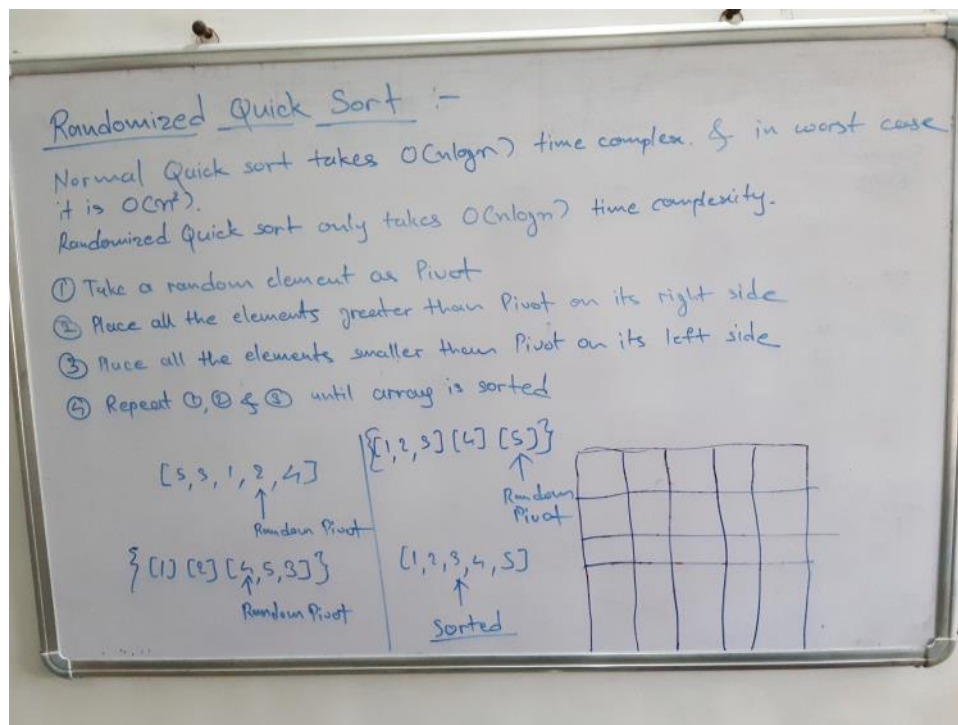 Randomized Quick Sort :-
Normal Quick sort takes O(nlogn) time complex. & in worst case
it is O(n²).
Randomized Quick sort only takes O(nlogn) time complexity.
① Take a random element as Pivot
② Place all the elements greater than Pivot on its right side
③ Place all the elements smaller than Pivot on its left side
④ Repeat ①, ② & ③ until array is sorted
[5, 3, 1, 2, 4]
↑
Random Pivot
{[1] [2] [4, 5, 3]}
↑
Random Pivot
{[1, 2, 3] [4] [5]}
↑
Random
Pivot
[1, 2, 3, 4, 5]
↑
Sorted